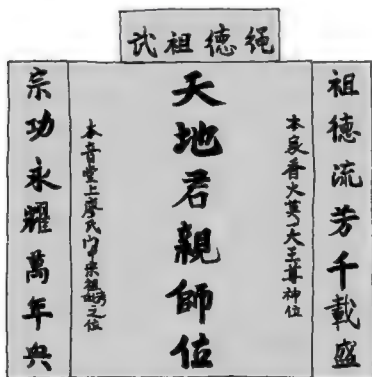 绳德祖武
祖德流芳千載盛
本家香火莫大王尊神位
天地君親師位
本音堂上廖氏門宗祖之位
宗功永耀萬年典